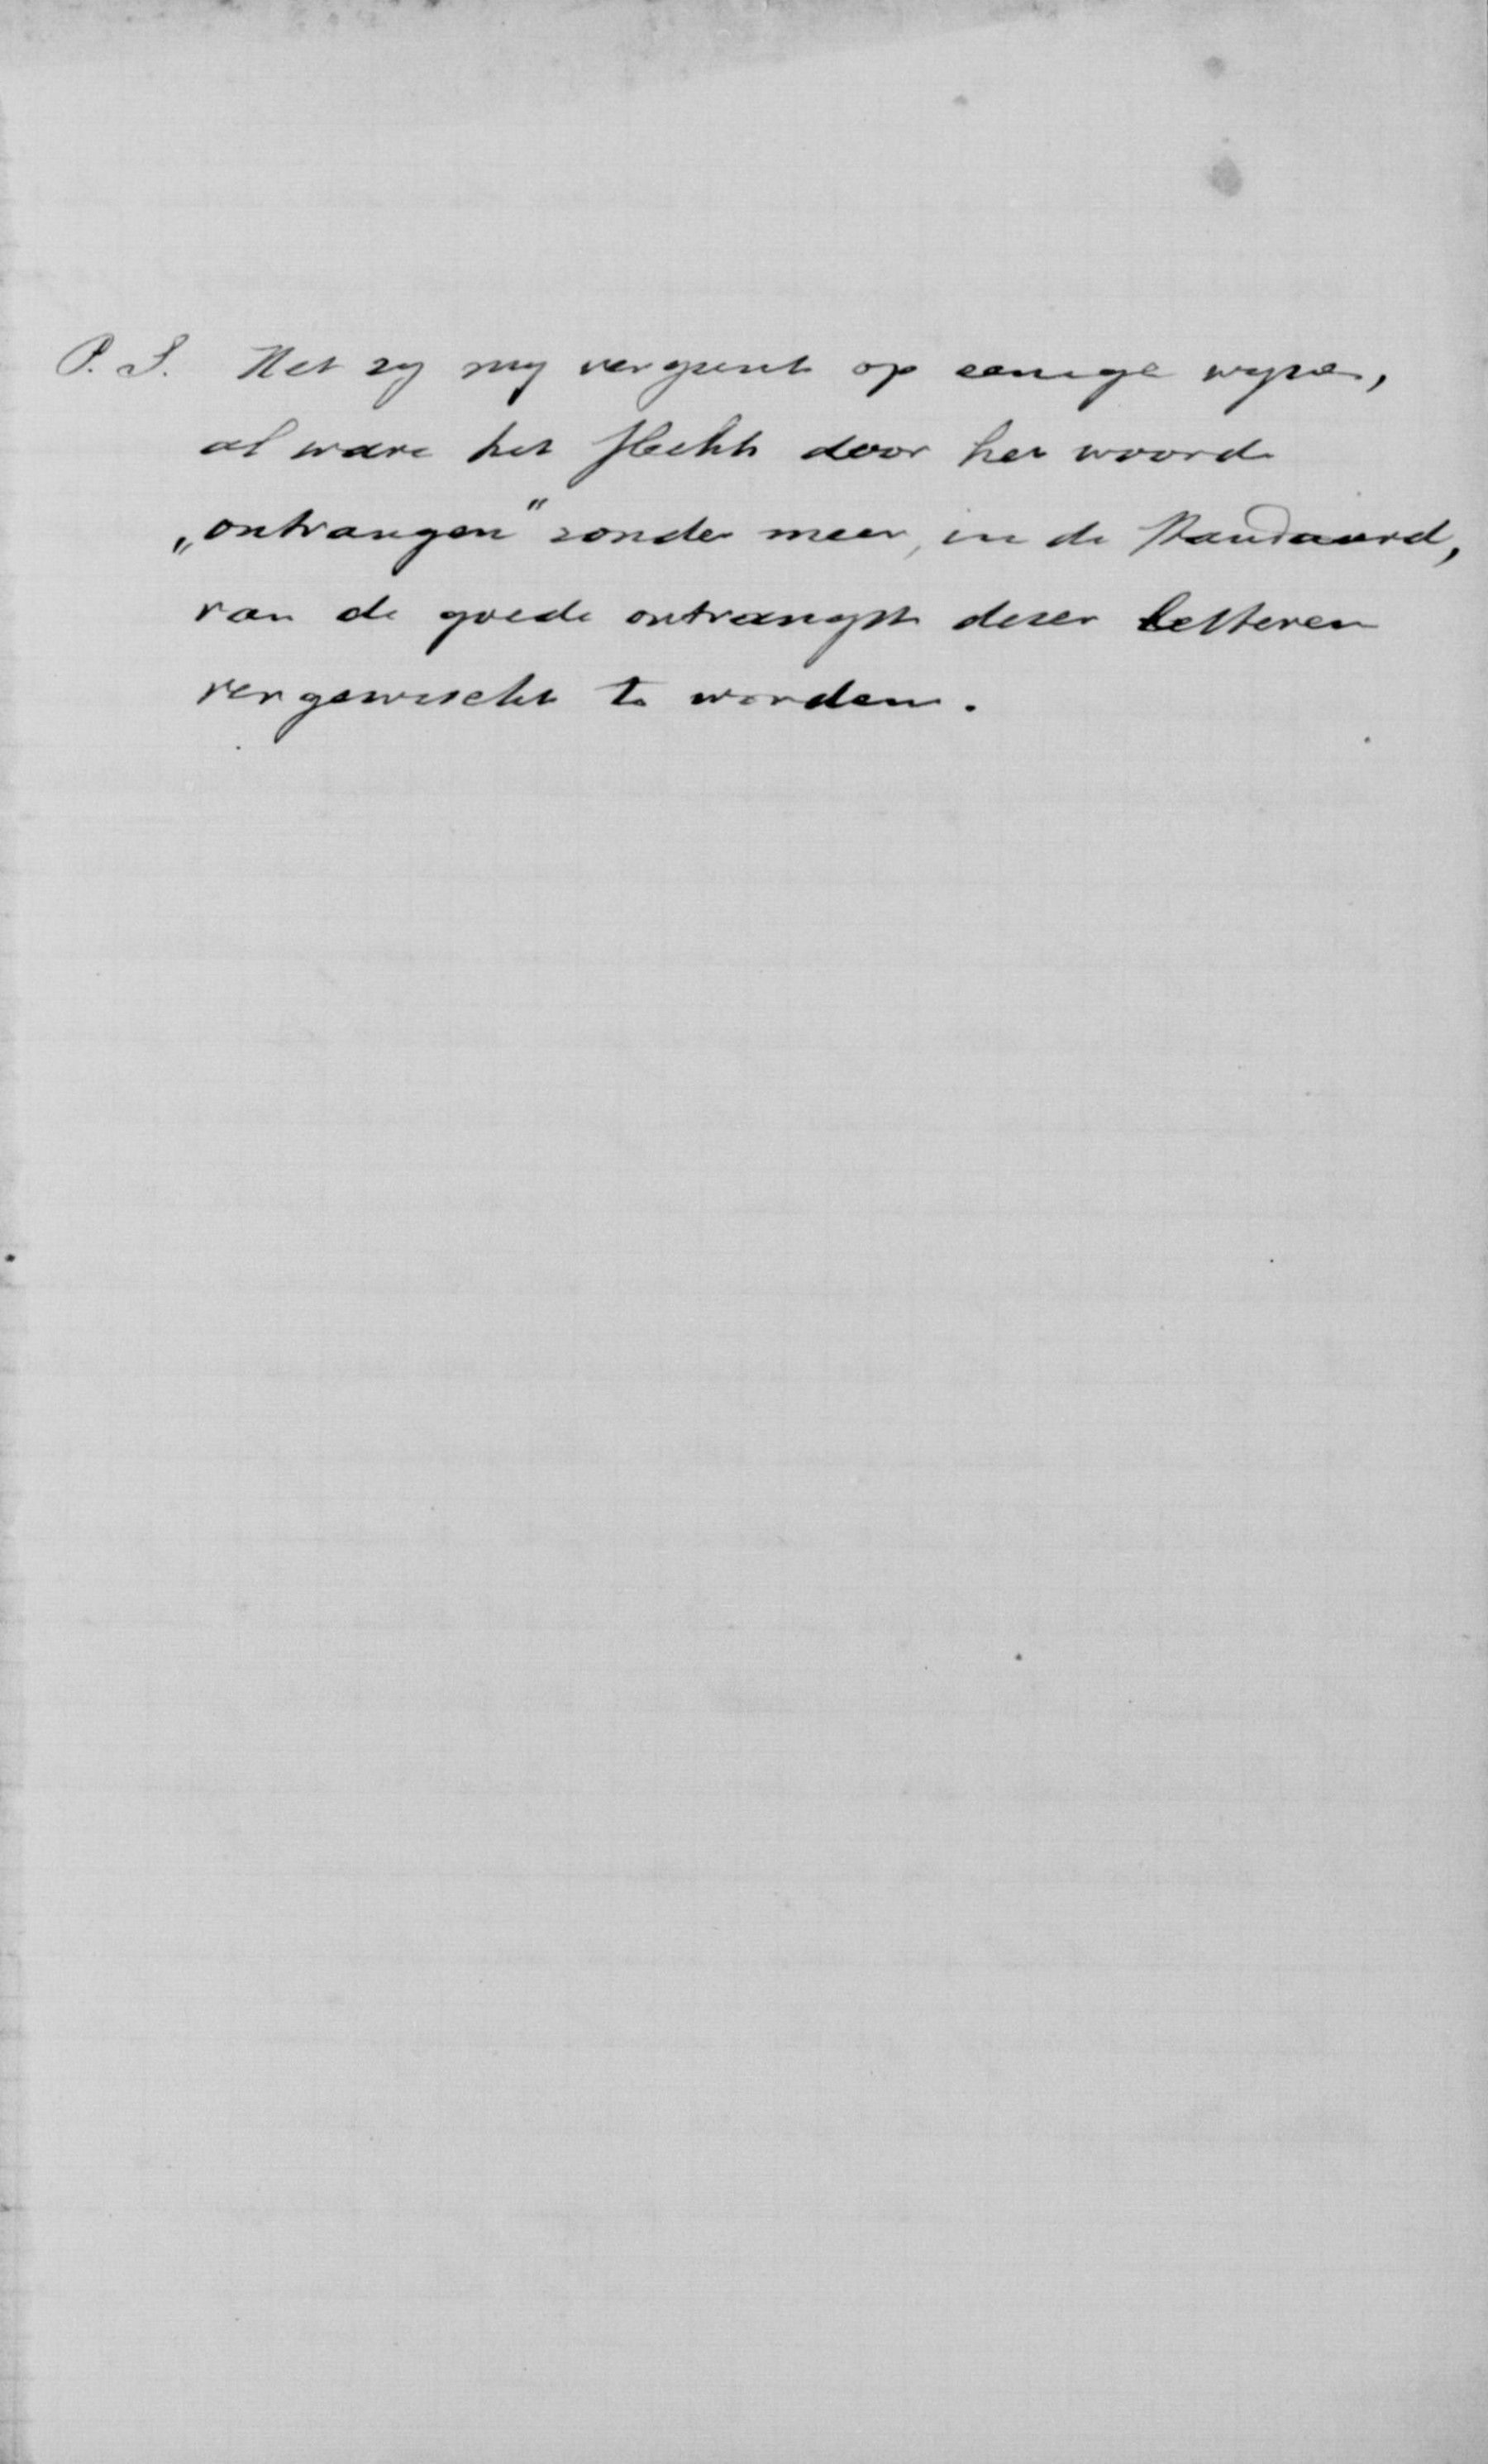 P. S. Het zy my vergunt op eenige wyze,
al ware het slechts door het woord
„ontvangen" zonder meer, in de Standaard,
van de goede ontvangst dezer letteren
vergewischt te worden.